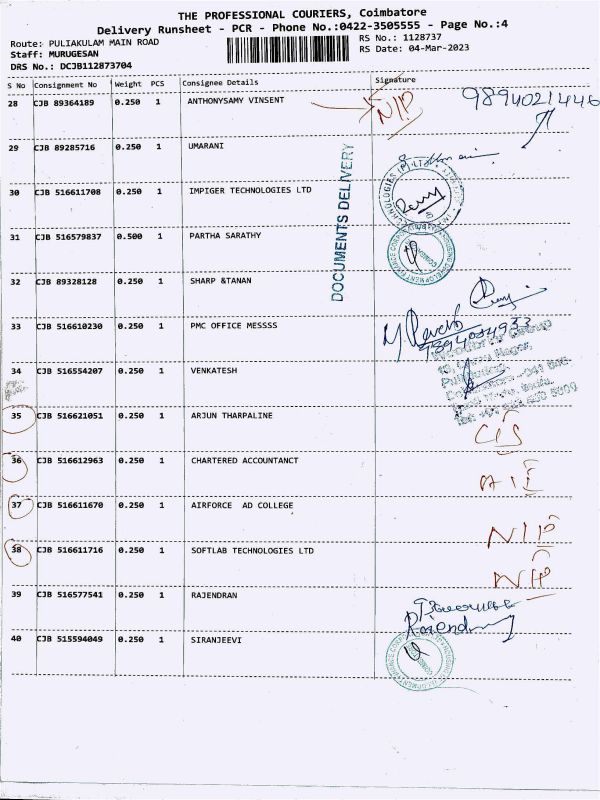 THE PROFESSIONAL COURIERS, Coimbatore
Delivery Runsheet - PCR - Phone No.:0422-3505555 - Page No.:4
Route: PULIAKULAM MAIN ROAD
RS No.: 1128737
Staff: MURUGESAN
RS Date: 04-Mar-2023
DRS No.: DCJB112873704
S No Consignment No Weight PCS Consignee Details Signature
28 CJB 89364189 0.250 1 ANTHONYSAMY VINSENT NIP 9894021446
29 CJB 89285716 0.250 1 UMARANI
DOCUMENTS DELIVERY
30 CJB 516611708 0.250 1 IMPIGER TECHNOLOGIES LTD
31 CJB 516579837 0.500 1 PARTHA SARATHY
32 CJB 89328128 0.250 1 SHARP &TANAN
33 CJB 516610230 0.250 1 PMC OFFICE MESSSS
34 CJB 516554207 0.250 1 VENKATESH
35 CJB 516621051 0.250 1 ARJUN THARPALINE
36 CJB 516612963 0.250 1 CHARTERED ACCOUNTANCT
37 CJB 516611670 0.250 1 AIRFORCE AD COLLEGE NIP
38 CJB 516611716 0.250 1 SOFTLAB TECHNOLOGIES LTD NIP
39 CJB 516577541 0.250 1 RAJENDRAN
40 CJB 515594049 0.250 1 SIRANJEEVI